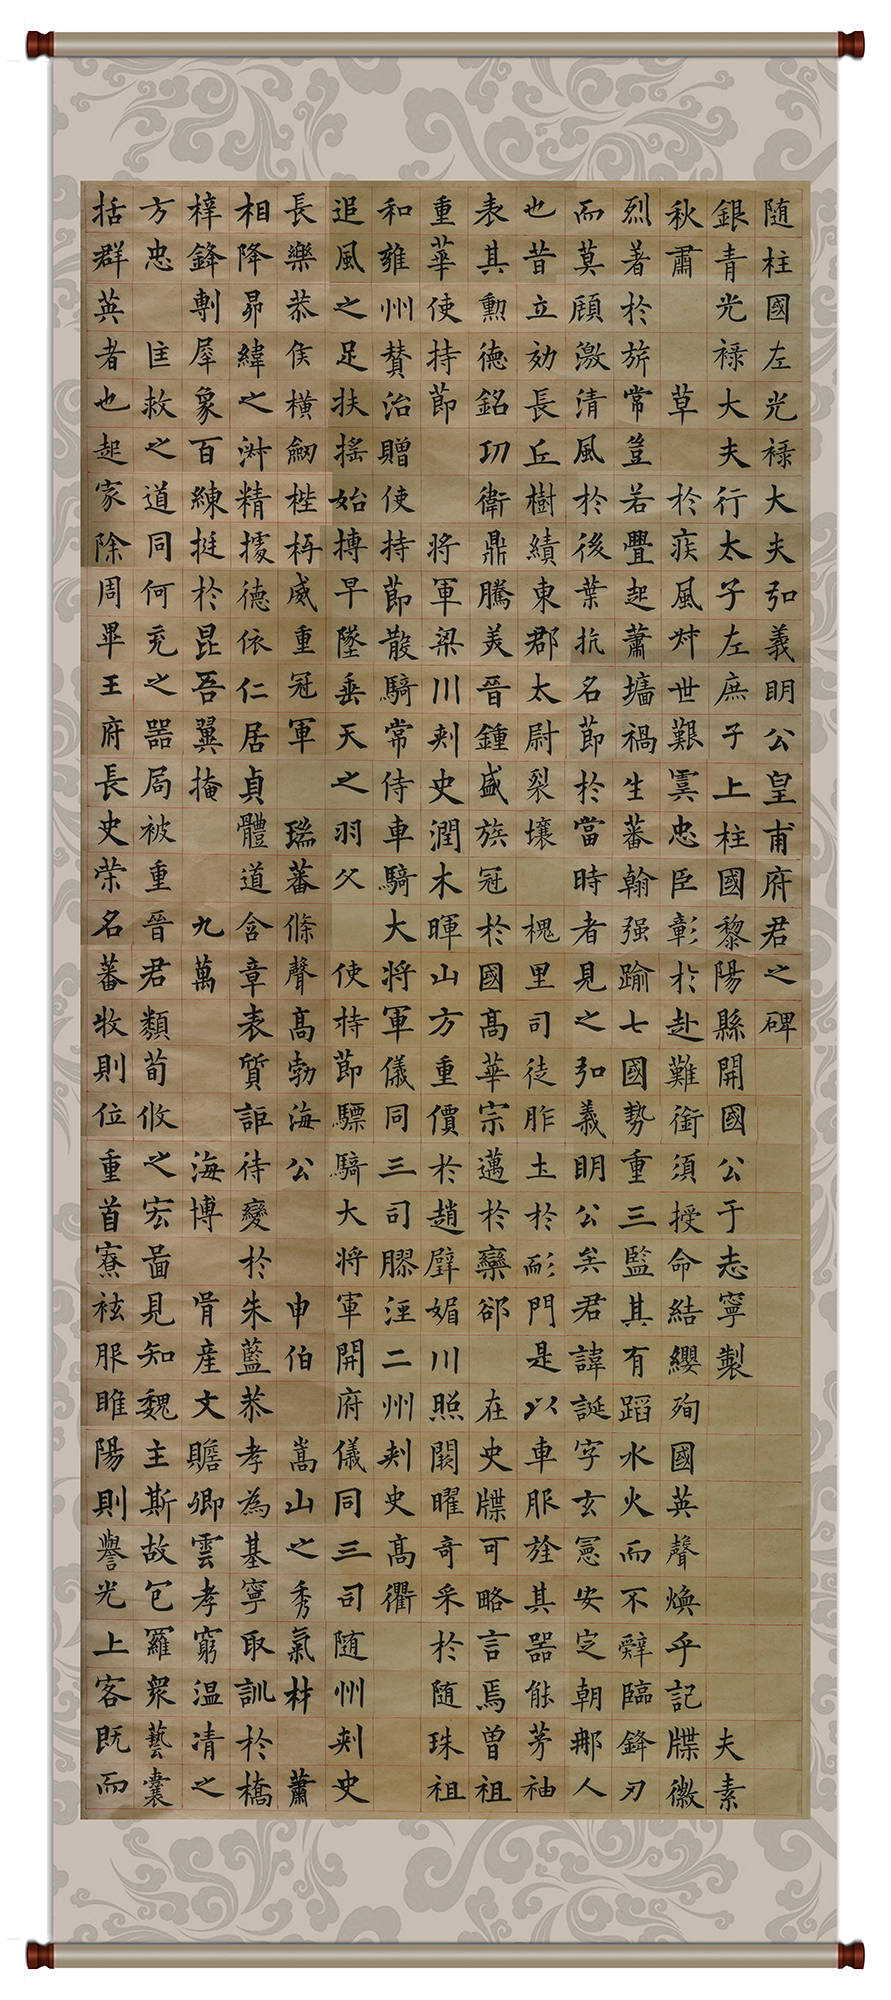 随柱國左光禄大夫弘義明公皇甫府君之碑
銀青光禄大夫行太子左庶子上柱國黎陽縣開國公于志寧製夫素
秋肅草於疾風世艱忠臣彰於赴難銜須授命結纓殉國英聲煥乎記牒徽
烈著於旂常豈若舋起蕭墻禍生蕃翰强踰七國勢重三監其有蹈水火而不辭臨鋒刃
而莫顧激清風於後葉抗名節於當時者見之弘義明公矣君諱誕字玄憲安定朝那人
也昔立効長丘樹績東郡太尉裂壤槐里司徒胙土於耏門是以車服旌其器能茅袖
表其勲德銘功衛鼎騰美晉鍾盛族冠於國高華宗邁於欒郤在史牒可略言焉曽祖
重華使持節將軍梁川刺史潤木暉山方重價於趙璧媚川照闕曜奇采於随珠祖
和雍州賛治贈使持節散騎常侍車騎大將軍儀同三司膠涇二州刺史高衢
追風之足扶搖始搏早墜垂天之羽父使持節驃騎大將軍開府儀同三司随州刺史
長樂恭侯横劒桎威重冠軍瑞蕃條聲高勃海公申伯嵩山之秀氣材蕭
相降昴緯之精據德依仁居貞體道含章表質詎待變於朱藍恭孝為基寧取訓於橋
梓鋒剸犀象百練挺於昆吾翼掩九萬海博骨産文贍卿雲孝窮温清之
方忠匡救之道同何充之器局被重晉君類荀攸之宏啚見知魏主斯故包羅衆藝囊
括群英者也起家除周畢王府長史荣名蕃牧則位重首寮袨服睢陽則譽光上客既而